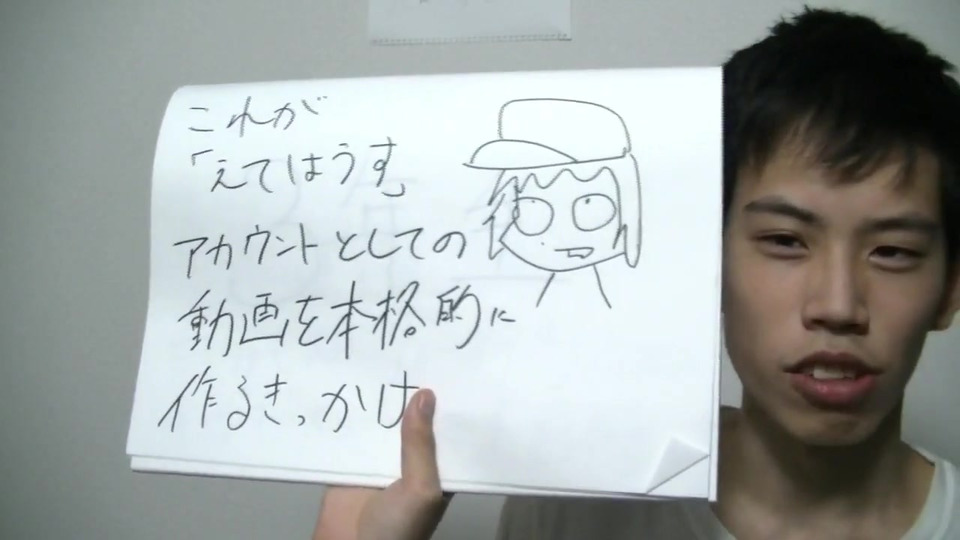 これが
「えてはうす」
アカウントとしての
動画を本格的に
作るきっかけ